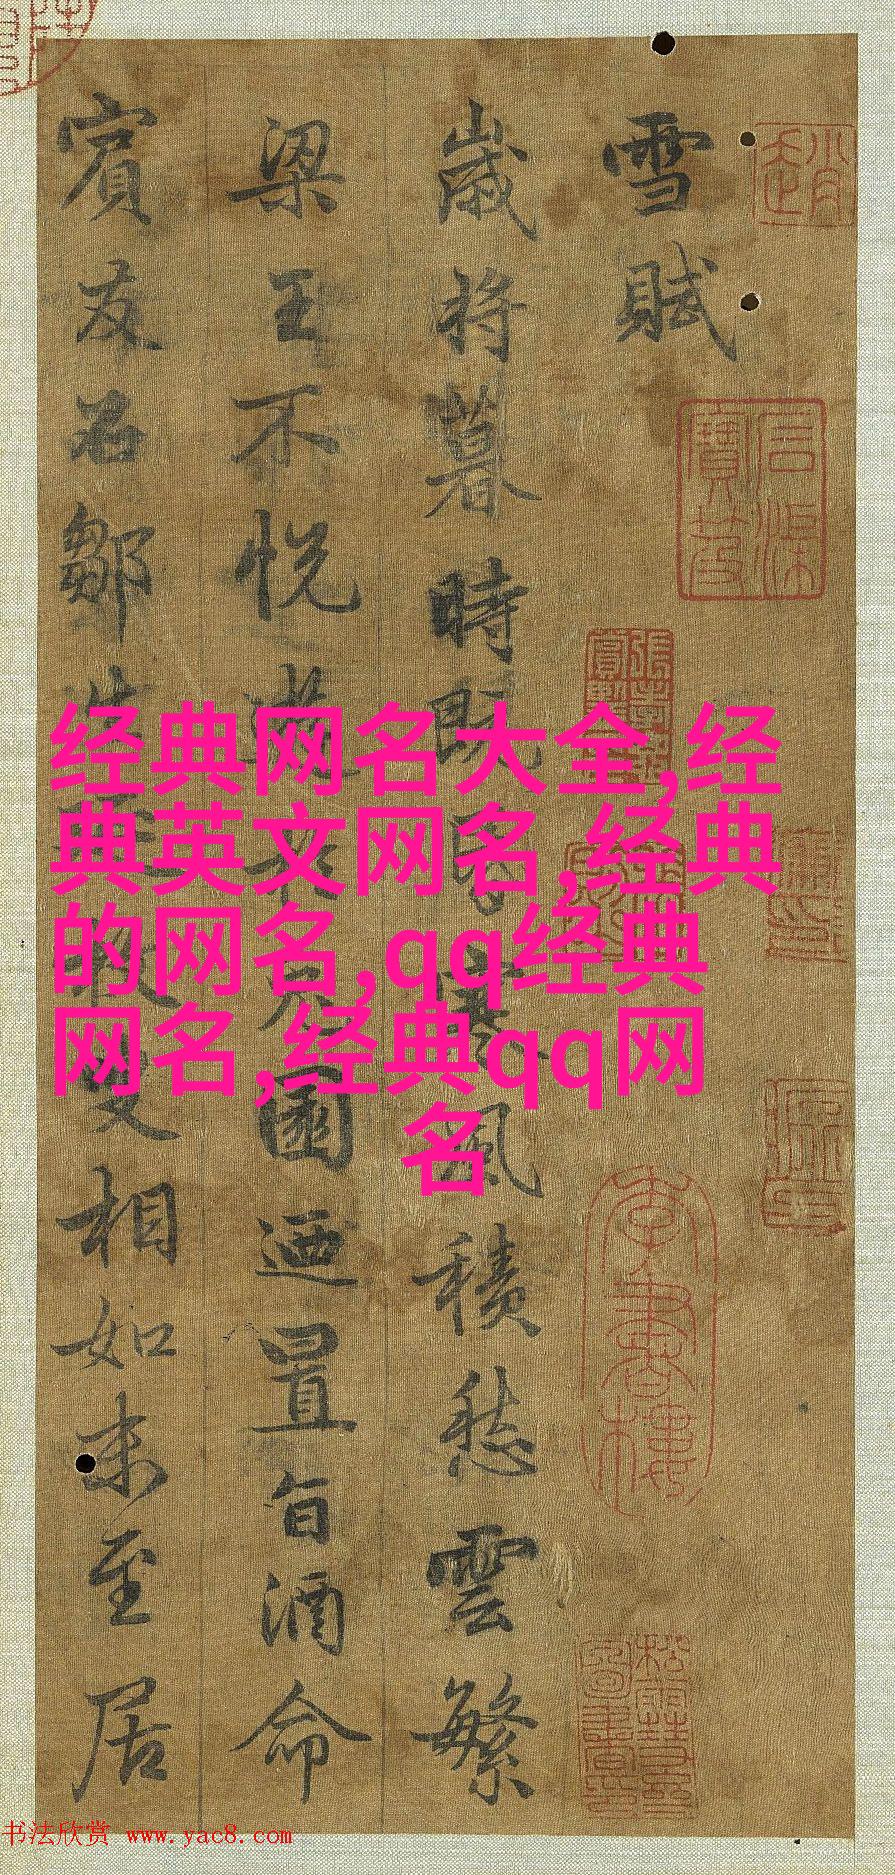 雪賦
歲將暮時既昏寒風積愁雲繁
梁王不悅遊於兔園迺置旨酒命
賓友召鄒生延枚叟相如末至居
经典网名大全,经
典英文网名,经典
的网名,qq经典
网名,经典qq网
名
书法欣赏 www.yac8.com